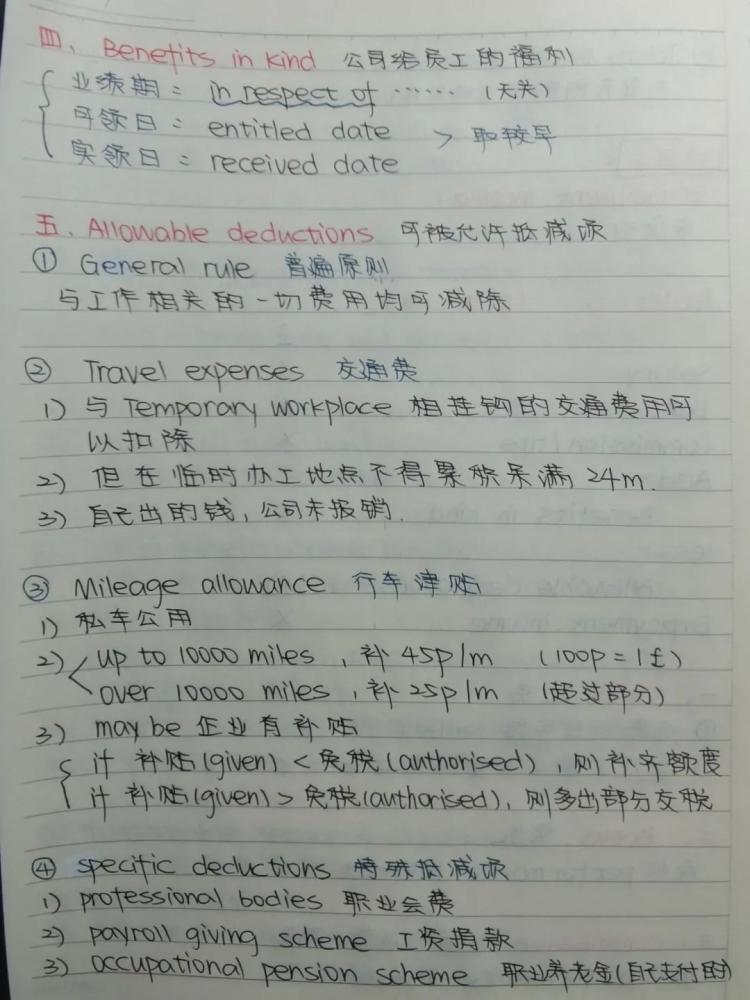 四、Benefits in kind 公司给员工的福利
业绩期：in respect of ······ （无关）
可领日：entitled date > 取较早
实领日：received date
五、Allowable deductions 可被允许抵减项
① General rule 普遍原则
与工作相关的一切费用均可减除
② Travel expenses 交通费
1) 与 Temporary workplace 相挂钩的交通费用可
以扣除
2) 但在临时办工地点不得累积呆满 24m.
3) 自己出的钱，公司未报销.
③ Mileage allowance 行车津贴
1) 私车公用
2) up to 10000 miles，补 45p/m （100p = 1£）
over 10000 miles，补 25p/m （超过部分）
3) may be 企业有补贴
if 补贴(given) < 免税(authorised)，则补齐额度
if 补贴(given) > 免税(authorised)，则多出部分交税
④ specific deductions 特殊抵减项
1) professional bodies 职业会费
2) payroll giving scheme 工资捐款
3) occupational pension scheme 职业养老金(自己支付的)